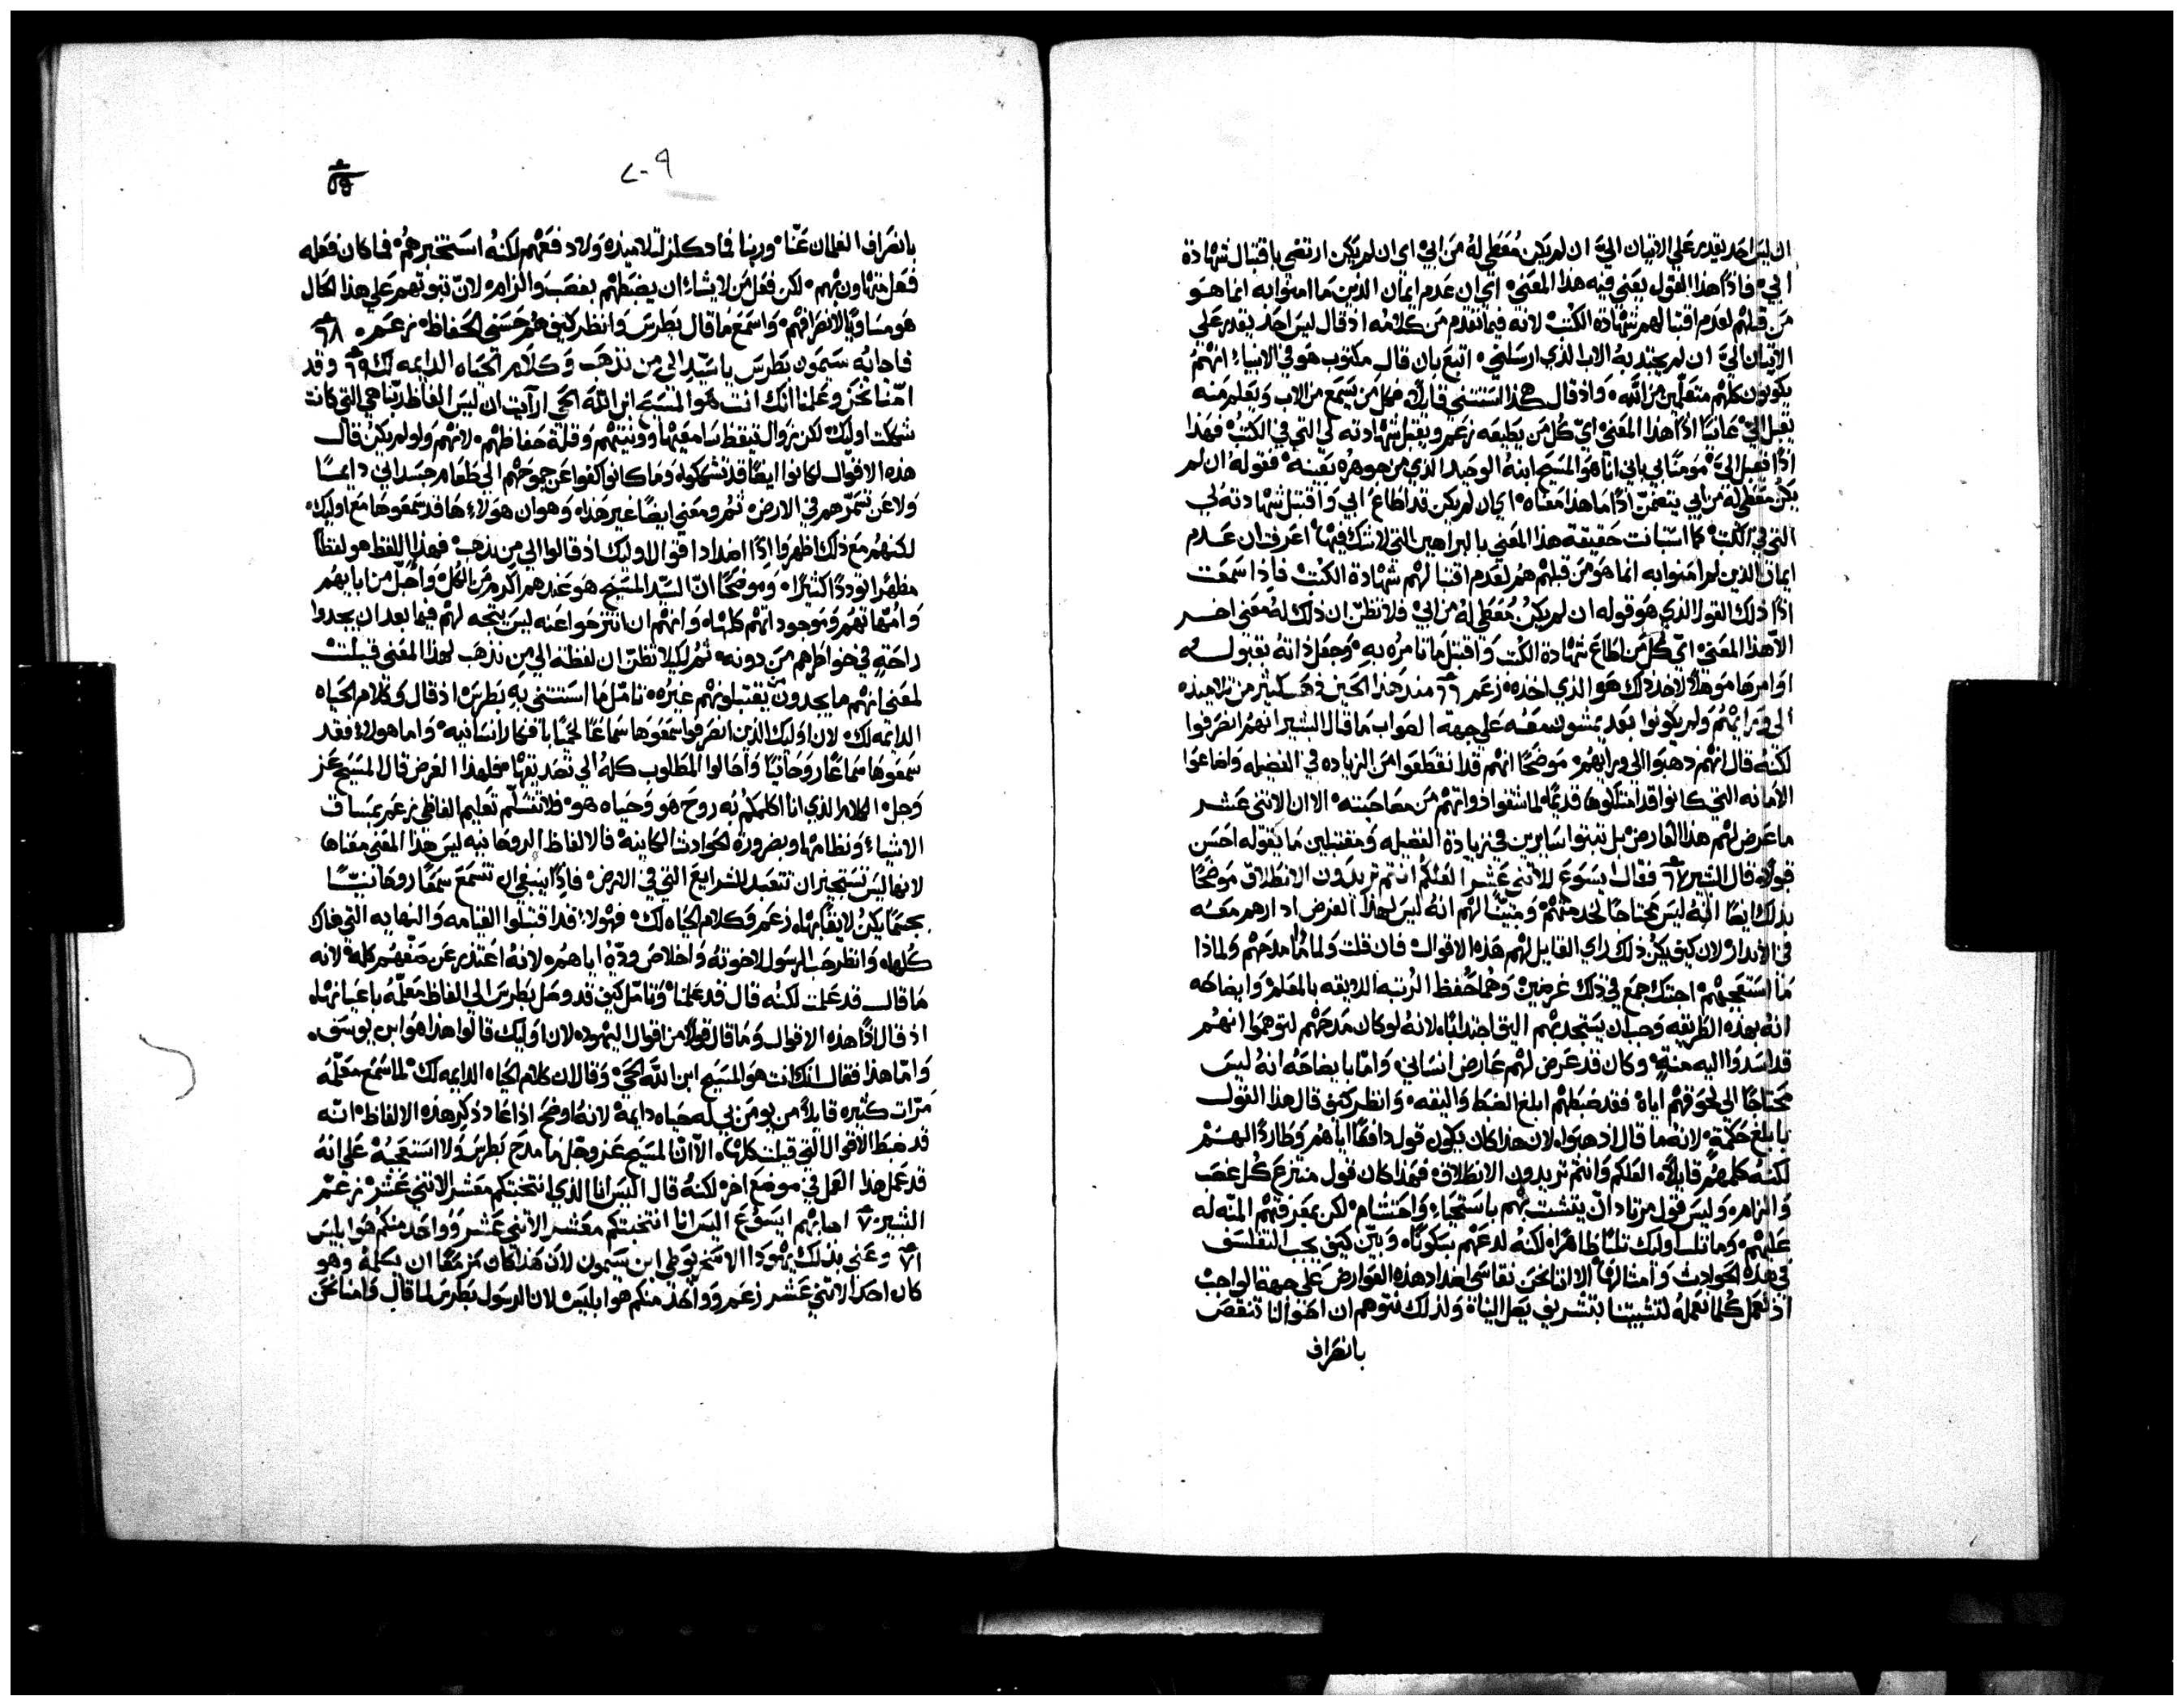 ان ليس احد يقدر على الاتيان اليّ ان لم يكن مُعَطي لهُ من ابي اي ان لم يكن ارتضي باقتبال شهادة
ابي فاذًا هذا القول يعني فيه هذا المعني اي ان عدم ايمان الذين ما امنوا به انما هو
من قبلهم لعدم اقتبالهم شهادة الكتب لانه فيما تقدم من كلامه اذ قال ليس احد يقدر علي
الاتيان اليّ ان لم يجتذبهُ الاب الذي ارسلني اتبع بان قال مكتوب هو في الانبياء انهم
يكونون كلهم متعلمين من الله واذ قال هذا استثني قايلاً فكل من يسمع من الاب ويعلم منه
يقبل اليّ عانيًا اذًا هذا المعني ايّ كل من يطيعه زعم ويقبل شهادته لي التي في الكتب فهذا
اذًا يقبل اليّ مومنًا بي باني انا هو المسيح ابنهُ الوحيد الذي من جوهره بعينه فقوله ان لم
يكن معطي له من ابي يتضمن اذًا ما هذا معناه اي ان لم يكن قد اطاع ابي واقتبل شهادته لي
التي في الكتب كما استبانت حقيقة هذا المعني بالبراهين التي لا شك فيها اعرف ان عدم
ايمان الذين لم امنوا به انما هو من قبلهم هم لعدم اقتبالهم شهادة الكتب فاذا سمعت
اذًا ذلك القول الذي هو قوله ان لم يكن مُعطي لهُ من ابي فلا تظن ان ذلك لهُ معني اخر
الّا هذا المعني ايّ كل من اطاع شهادة الكتب واقتبل ما تامر به وجعل ذاته بقبوله
اوامرها موهلاً لاخذ ذلك هو الذي اخده زعم ٦٦ منذ هذا الحين ذهب كثير من تلاميذه
الي ورايهم ولم يكونوا بعد يمشون معه علي جهة الصواب ما قال البشير انهم انصرفوا
لكنه قال انهم ذهبوا الي ورايهم موضحًا انهم قد انقطعوا من الزياده في الفضيله واضاعوا
الامانه التي كانوا قد امتلكوها قديمًا لما شقوا ذواتهم من مصاحبته الا ان الاثني عشر
ما عرض لهم هذا العارض بل ثبتوا سايرين في زيادة الفضيله ومقتبلين ما يقوله احسن
قبول قال البشير ٦٧ فقال يسوع للاثني عشر العلكم انتم تريدون الانطلاق موضحًا
بذلك ايضًا انهُ ليس محتاجًا لخدمتهم ومبينًا لهم انه ليس لهذا الغرض ادارهم معه
في الابتدا لان كيف يكن ذلك راي القايل لهم هذه الاقوال فان قلت ولما ما مدحهم ولماذا
ما استعجبهم اجبتك جمع في ذلك غرضين وهما حفظ الرتبه اللايقه بالمعلم وايضاحه
انه بهذه الطريقه وجب ان يستجذبهم اليق اجتذابًا لانهُ لو كان مدحهم لتوهموا انهم
قد اسدوا اليه منةٍ وكان قد عرض لهم عارض انساني وامّا بايضاحه انه ليس
محتاجًا الي لحوقهم اياهُ فقد ضبطهم ابلغ الضبط واليقه وانظر كيف قال هذا القول
بابلغ حكمةٍ لانه ما قال اذهبوا لان هذا كان يكون قول دافعًا اياهم وطاردًا لهم
لكنه كلمهم قايلاً العلكم وانتم تريدون الانطلاق فهذا كان قول منتزع كل غصب
والزام وليس قول مرتاد ان يتشبث بهم باستحياء واحتشام لكن بمعرفتهم المنّه له
عليهم وما ثلب اوليك ثلبًا ظاهرًا لكنه لدعهم بسكوته وبيّن كيف يجب التفلسف
في هذه الحوادث وامثالها الا اننا نحن نقاسي اضداد هذه العوارض علي جهة الواجب
اذ نعمل كلما نعملهُ لتشبثنا بتشريف يصل الينا ولذلك نتوهم ان احوالنا تنقص
بانصراف
٢٠٩
بانصراف الغلمان عنّا وربنا فما دكّ لز لتلاميذه ولا دفعهم لكنهُ استخبرهم فما كان فعله
فعل متهاون بهم لكن فعل من لا يشاء ان يضبطهم بغصب والزام لانّ ثبوتهم علي هذا الحال
هو مساويًا لانصرافهم واسمع ما قال بطرس وانظر كيف هُم حَسَني الحفاظ زعم ٦٨
فاجابه سمعون بطرس يا سيّد الي من نذهب وكلام الحياه الدايمه لك ٦٩ وقد
امنّا نحن وعلمنا انك انت هو المسيح ابن الله الحي ارايت ان ليس الفاظ ربّنا هي التي كانت
شككت اوليك لكن زوال تيقظ سامعيها وونيتهم وقلة حفاظهم لانهم ولو لم يكن قال
هذه الاقوال لكانوا ايضًا قد تشككوا وما كانوا كفوا عن جموحهم الي طعام جسداني دايمًا
ولا عن تسمّرهم في الارض ثم ومعني ايضًا غير هذا وهو ان هولاء ها قد سمعوها مع اوليك
لكنهم مع ذلك اظهروا اذًا اضداد اقوال اوليك اذ قالوا الي من نذهب فهذا اللفظ هو لفظًا
مظهرًا توددًا كثيرًا وموضحًا انّ السيّد المسيح هو عندهم اكرم من الكل واجلّ من ابايهم
وامهاتهم وموجوداتهم كلها وانهم ان انتزحوا عنه ليس يتجه لهم فيما بعد ان يجدوا
راحةٍ في خواطرهم من دونه ثم لكيلا تظن ان لفظة الي من نذهب لهذا المعني قيلت
لمعني انهم ما يجدون يقتبلونهم غيره تامّل ما استثني به بطرس اذ قال وكلام الحياه
الدايمه لك لان اوليك الذين انصرفوا سمعوها سماعًا لحميًا بافكار انسانيه واما هولاء فقد
سمعوها سماعًا روحانيًا واحالوا المطلوب كله الي تصديقها فلهذا الغرض قال المسيح عز
وجل الكلام الذي انا اكلمكم به روح هو وحياه هو فلا تتسلّم تعليم الفاظي زعم بمساق
الاشياء ونظامها وبضرورة الحوادث الكاينة فالالفاظ الروحانيه ليس هذا المعني معناها
لانها ليس تستجيز ان تتعبد للشرايع التي في الارض فاذًا ينبغي ان تُسمَع سمعًا روحانيًا
زعم وكلام الحياه لك فهولاء قد اقتبلوا القيامه والنهايه التي هناك
كلها وانظر حب الرسول لاخوته واخلاص ودّه اياهم لانه اعتذر عن صفهم كله لانه
ما قال قد علمت لكنه قال قد علمنا وتامّل كيف قد وصل بطرس الي الفاظ معلّمه باعيانها
اذ قال اذًا هذه الاقوال وما قال قولاً من اقوال اليهود لان اوليك قالوا هذا هو ابن يوسف
وامّا هذا فقال انك انت هو المسيح ابن الله الحيّ وقال ان كلام الحياه الدايمه لك لما سمع معلّمه
مرّات كثيره قايلاً من يومن بي له حياه دايمة لانهُ اوضح اذًا عاد ذكر هذه الالفاظ انّه
قد ضبط الاقوال التي قيلت كلها الا انّ المسيح عز وجل ما مدح بطرس ولا استعجبهُ علي انه
قد عمل هذا العمل في موضع اخر لكنهُ قال اليس انا الذي انتخبتكم معشر الاثني عشر زعم
البشير ٧٠ اجابهم ايسوع اليس انا انتخبتكم معشر الاثني عشر وواحد منكم هو ابليس
٧١ وعني بذلك يهودا الاسخريوطي ابن سمعون لان هذا كان مزمعًا ان يسلمه وهو
كان احد الاثني عشر زعم وواحد منكم هو ابليس لان الرسول بطرس لما قال وامنا نحن